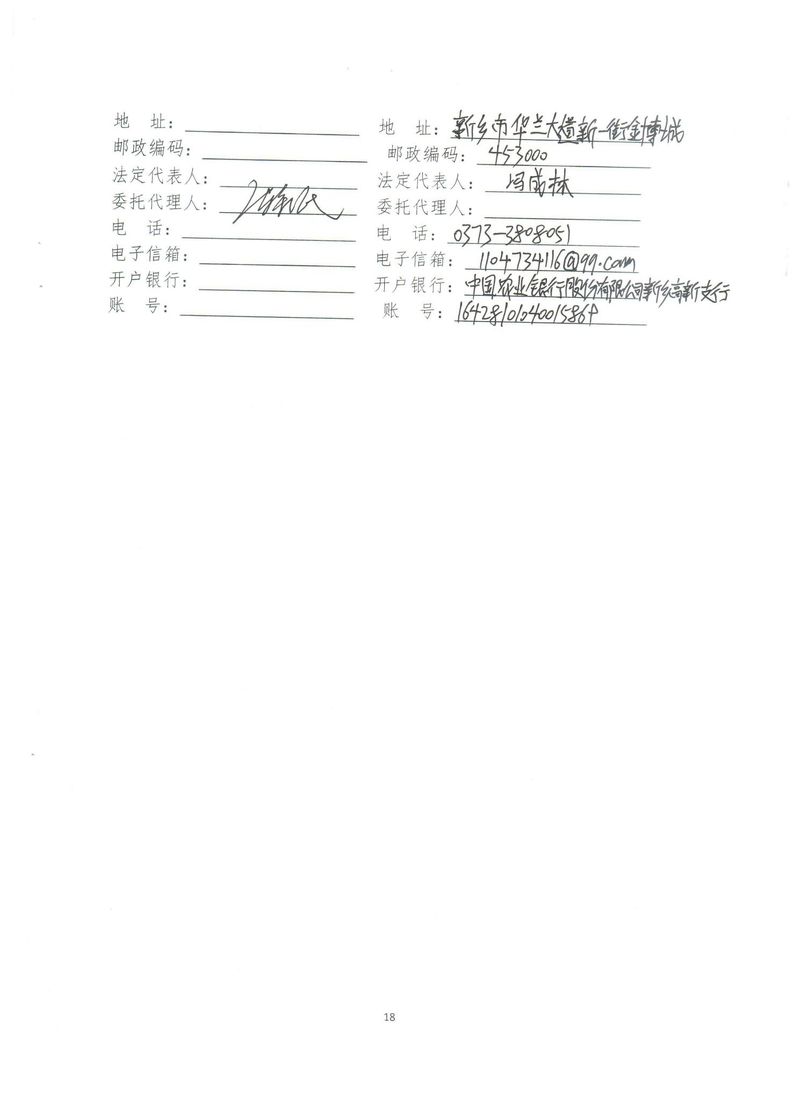 地 址：
邮政编码：
法定代表人：
委托代理人：
电 话：
电子信箱：
开户银行：
账 号：
地 址：新乡市华兰大道新一街金博城
邮政编码：453000
法定代表人：冯成林
委托代理人：
电 话：0373-3808051
电子信箱：1104734116@qq.com
开户银行：中国农业银行股份有限公司新乡高新支行
账 号：16428101040015864
18